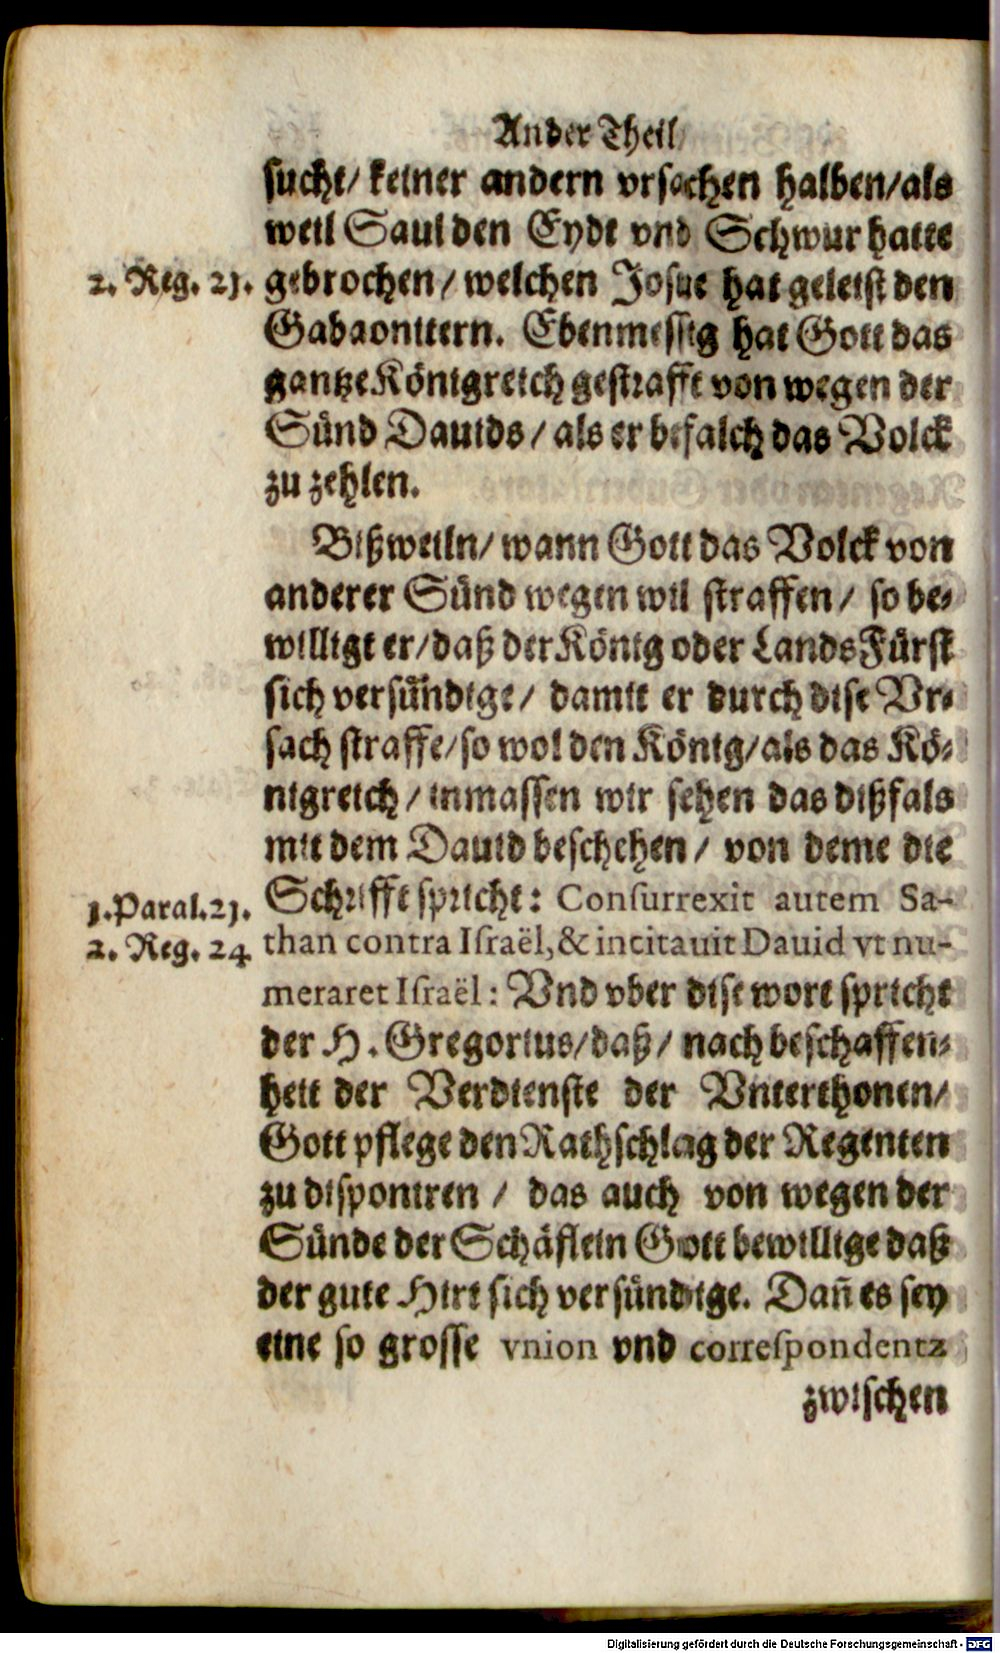 Ander Theil/
sucht/ keiner andern vrsachen halben/ als
weil Saul den Eydt vnd Schwur hatte
2. Reg. 21. gebrochen/ welchen Josue hat geleist den
Gabaonitern. Ebenmessig hat Gott das
gantze Königreich gestrafft von wegen der
Sünd Dauids/ als er befalch das Volck
zu zehlen.
Bißweiln/ wann Gott das Volck von
anderer Sünd wegen wil straffen/ so be-
willigt er/ daß der König oder LandsFürst
sich versündige/ damit er durch dise Vr-
sach straffe/ so wol den König/ als das Kö-
nigreich/ inmassen wir sehen das dißfals
mit dem Dauid beschehen/ von deme die
1. Paral. 21. Schrifft spricht: Consurrexit autem Sa-
2. Reg. 24 than contra Israël, & incitauit Dauid vt nu-
meraret Israël: Vnd vber dise wort spricht
der H. Gregorius/ daß/ nach beschaffen-
heit der Verdienste der Vnterthonen/
Gott pflege den Rathschlag der Regenten
zu disponiren/ das auch von wegen der
Sünde der Schäflein Gott bewillige daß
der gute Hirt sich versündige. Dañ es sey
eine so grosse vnion vnd correspondentz
zwischen
Digitalisierung gefördert durch die Deutsche Forschungsgemeinschaft - DFG